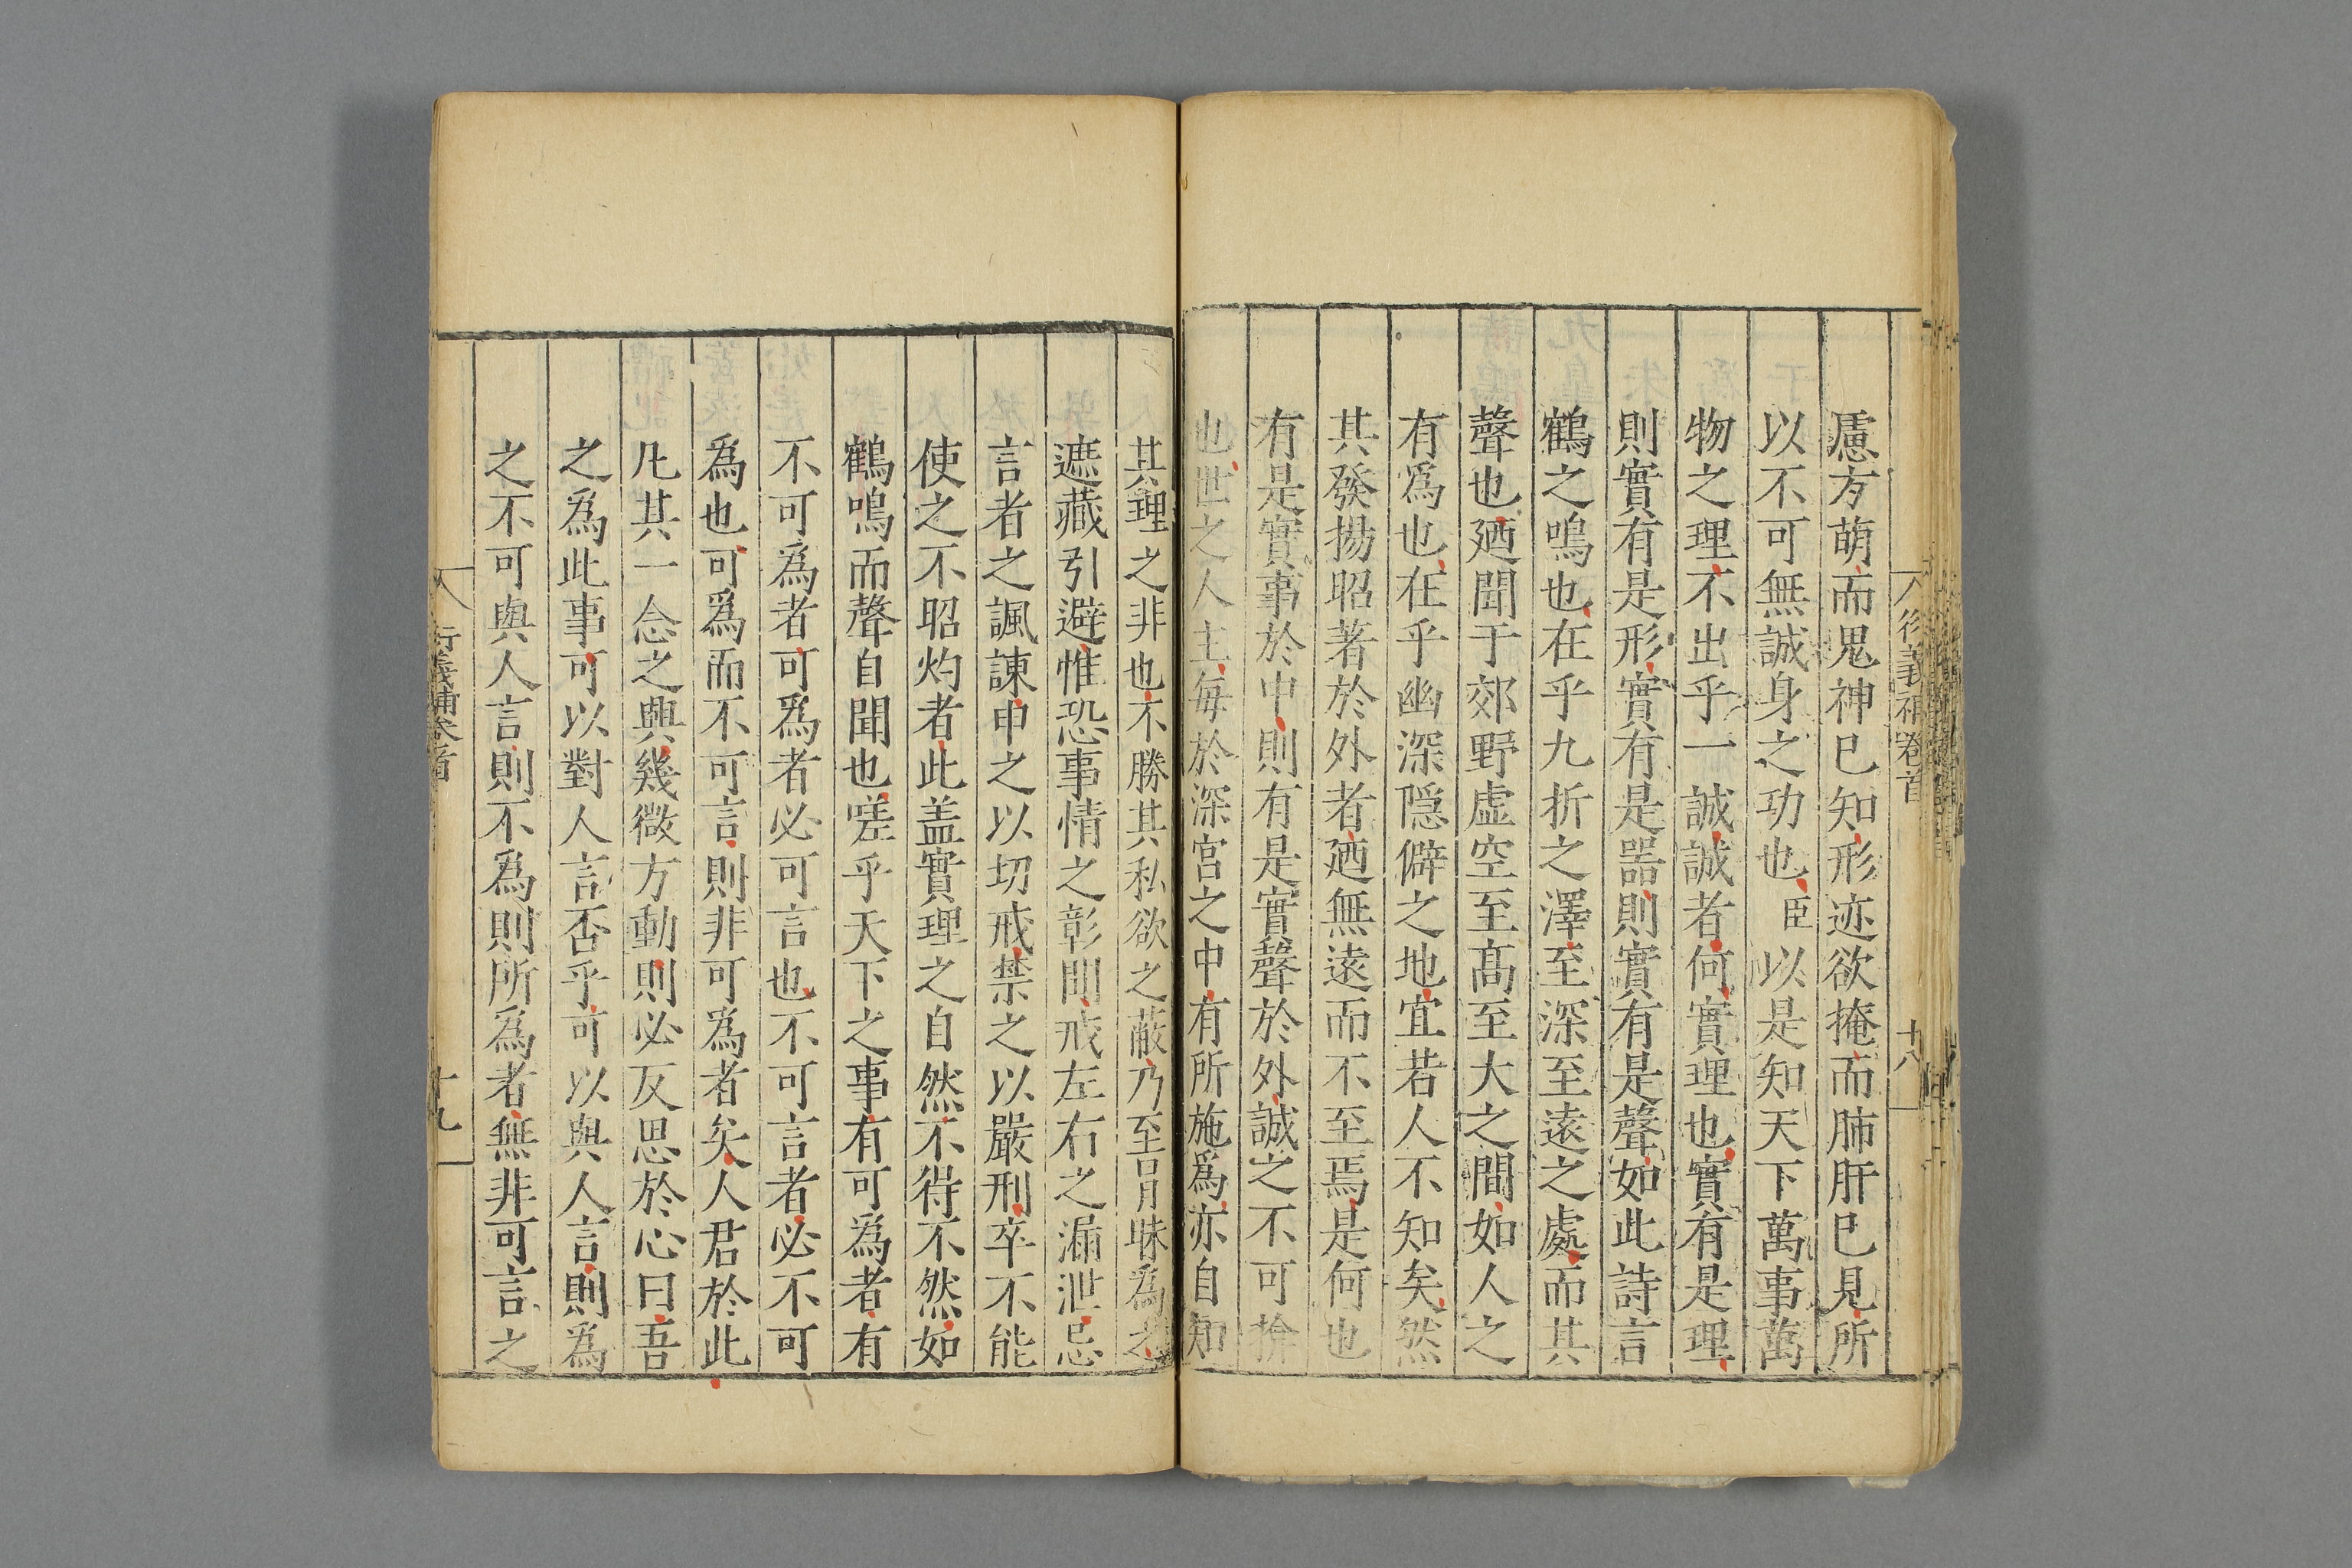 衍義補卷首
十八
慮方萌而鬼神已知形迹欲掩而肺肝已見所
以不可無誠身之功也臣以是知天下萬事萬
物之理不出乎一誠誠者何實理也實有是理
則實有是形實有是器則實有是聲如此詩言
鶴之鳴也在乎九折之澤至深至遠之處而其
聲也廼聞于郊野虛空至髙至大之間如人之
有爲也在乎幽深隱僻之地宜若人不知矣然
其發揚昭著於外者廼無遠而不至焉是何也
有是實事於中則有是實聲於外誠之不可揜
也世之人主每於深宫之中有所施爲亦自知
其理之非也不勝其私欲之蔽乃至冐昧爲之
遮藏引避惟恐事情之彰聞戒左右之漏泄忌
言者之諷諫申之以切戒禁之以嚴刑卒不能
使之不昭灼者此盖實理之自然不得不然如
鶴鳴而聲自聞也嗟乎天下之事有可爲者有
不可爲者可爲者必可言也不可言者必不可
爲也可爲而不可言則非可爲者矣人君於此
凡其一念之興幾微方動則必反思於心曰吾
之爲此事可以對人言否乎可以與人言則爲
之不可與人言則不爲則所爲者無非可言之
衍義補卷首
十九